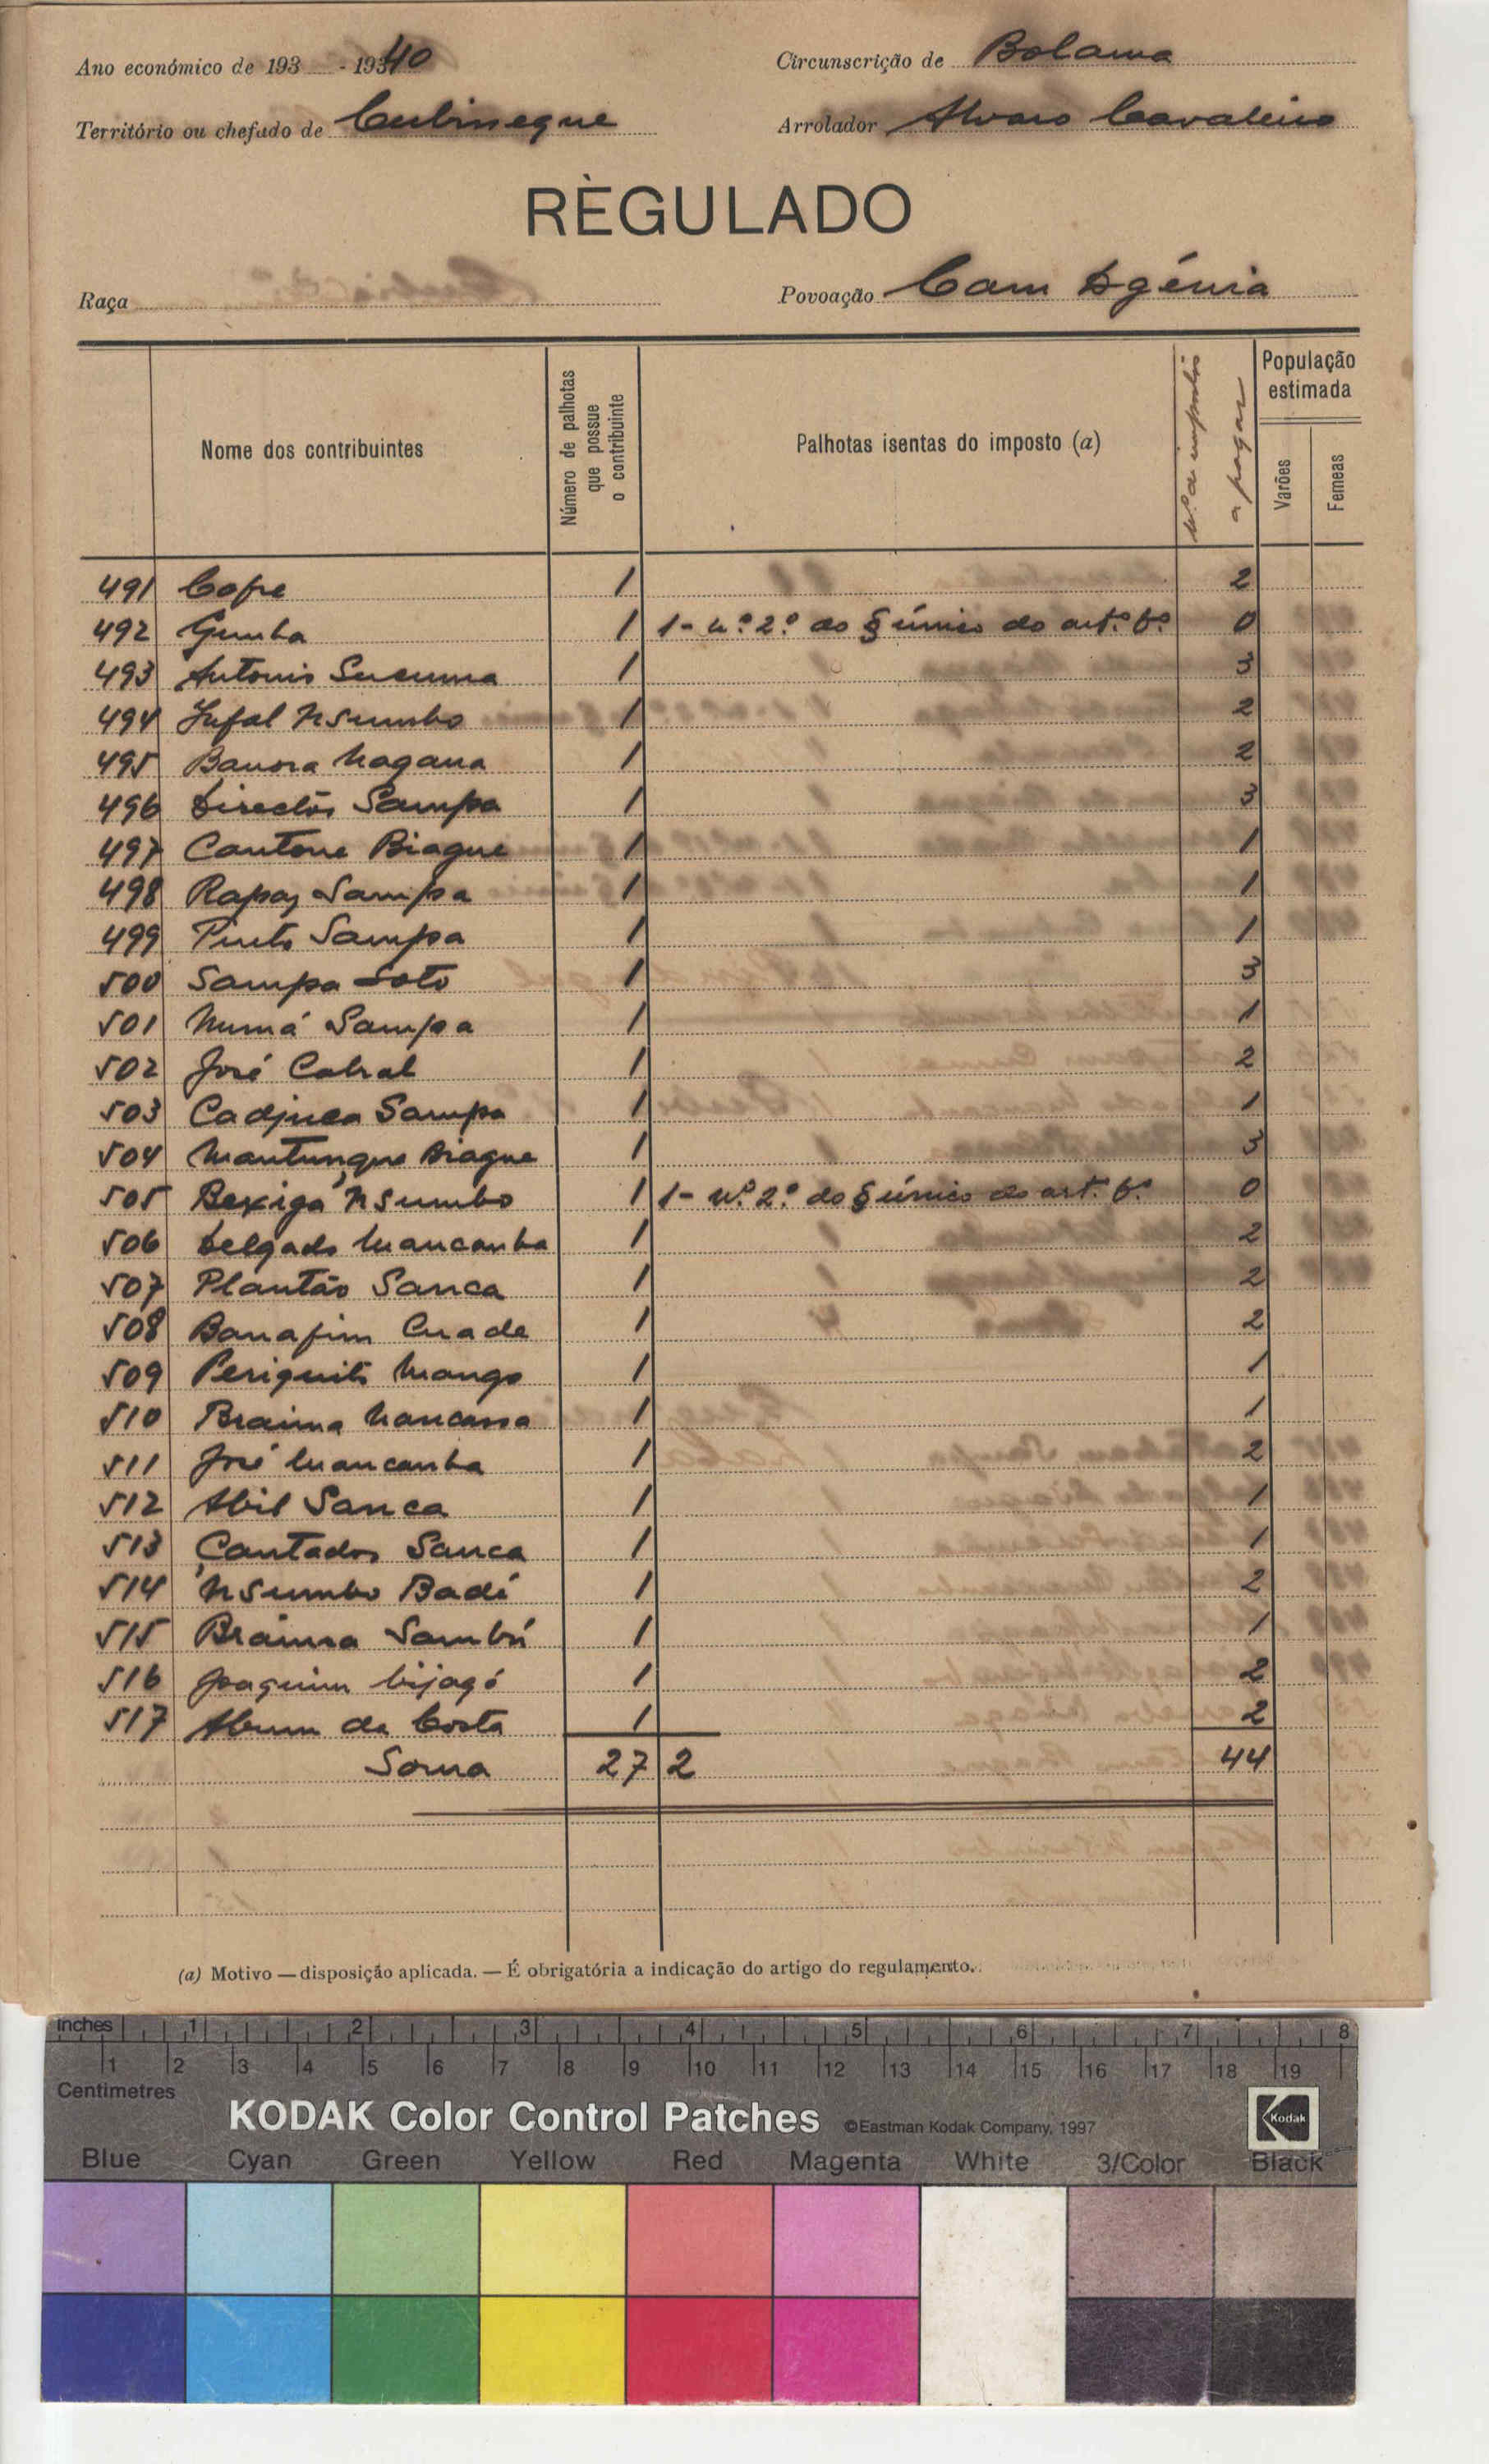 Ano económico de 193 - 1940
Circunscrição de Bolama
Território ou chefado de Cubinseque
Arrolador Alvaro Cavaleiro
RÈGULADO
Raça
Povoação Cam Dgénia
Nome dos contribuintes
Número de palhotas que possue o contribuinte
Palhotas isentas do imposto (a)
N.º de impostos a pagar
População estimada
Varões
Femeas
491 Cofre 1 2
492 Gumba 1 1- n.º 2.º do § único do art.º 6.º 0
493 Antonio Sucuma 1 3
494 Jufal Nsumbo 1 2
495 Banora Nagana 1 2
496 Director Sampa 1 3
497 Cantone Biague 1 1
498 Rapaz Sampa 1 1
499 Pinto Sampa 1 1
500 Sampa Soto 1 3
501 Numá Sampa 1 1
502 José Cabral 1 2
503 Cadjuca Sampa 1 1
504 Mantungue Biague 1 3
505 Bexiga N'Sumbo 1 1- n.º 2.º do § único do art.º 6.º 0
506 Delgado Mancanha 1 2
507 Plantão Sanca 1 2
508 Banafim Cuade 1 2
509 Periquito Mango 1 1
510 Braima Nancassa 1 1
511 José Mancanha 1 2
512 Abil Sanca 1 1
513 Cantador Sanca 1 1
514 N'Sumbo Badi 1 2
515 Braima Sambú 1 1
516 Joaquim bijagó 1 2
517 Abum da Costa 1 2
Soma 27 2 44
(a) Motivo — disposição aplicada. — É obrigatória a indicação do artigo do regulamento.
inches 1 2 3 4 5 6 7 8
1 2 3 4 5 6 7 8 9 10 11 12 13 14 15 16 17 18 19
Centimetres
KODAK Color Control Patches ©Eastman Kodak Company, 1997 Kodak
Blue Cyan Green Yellow Red Magenta White 3/Color Black